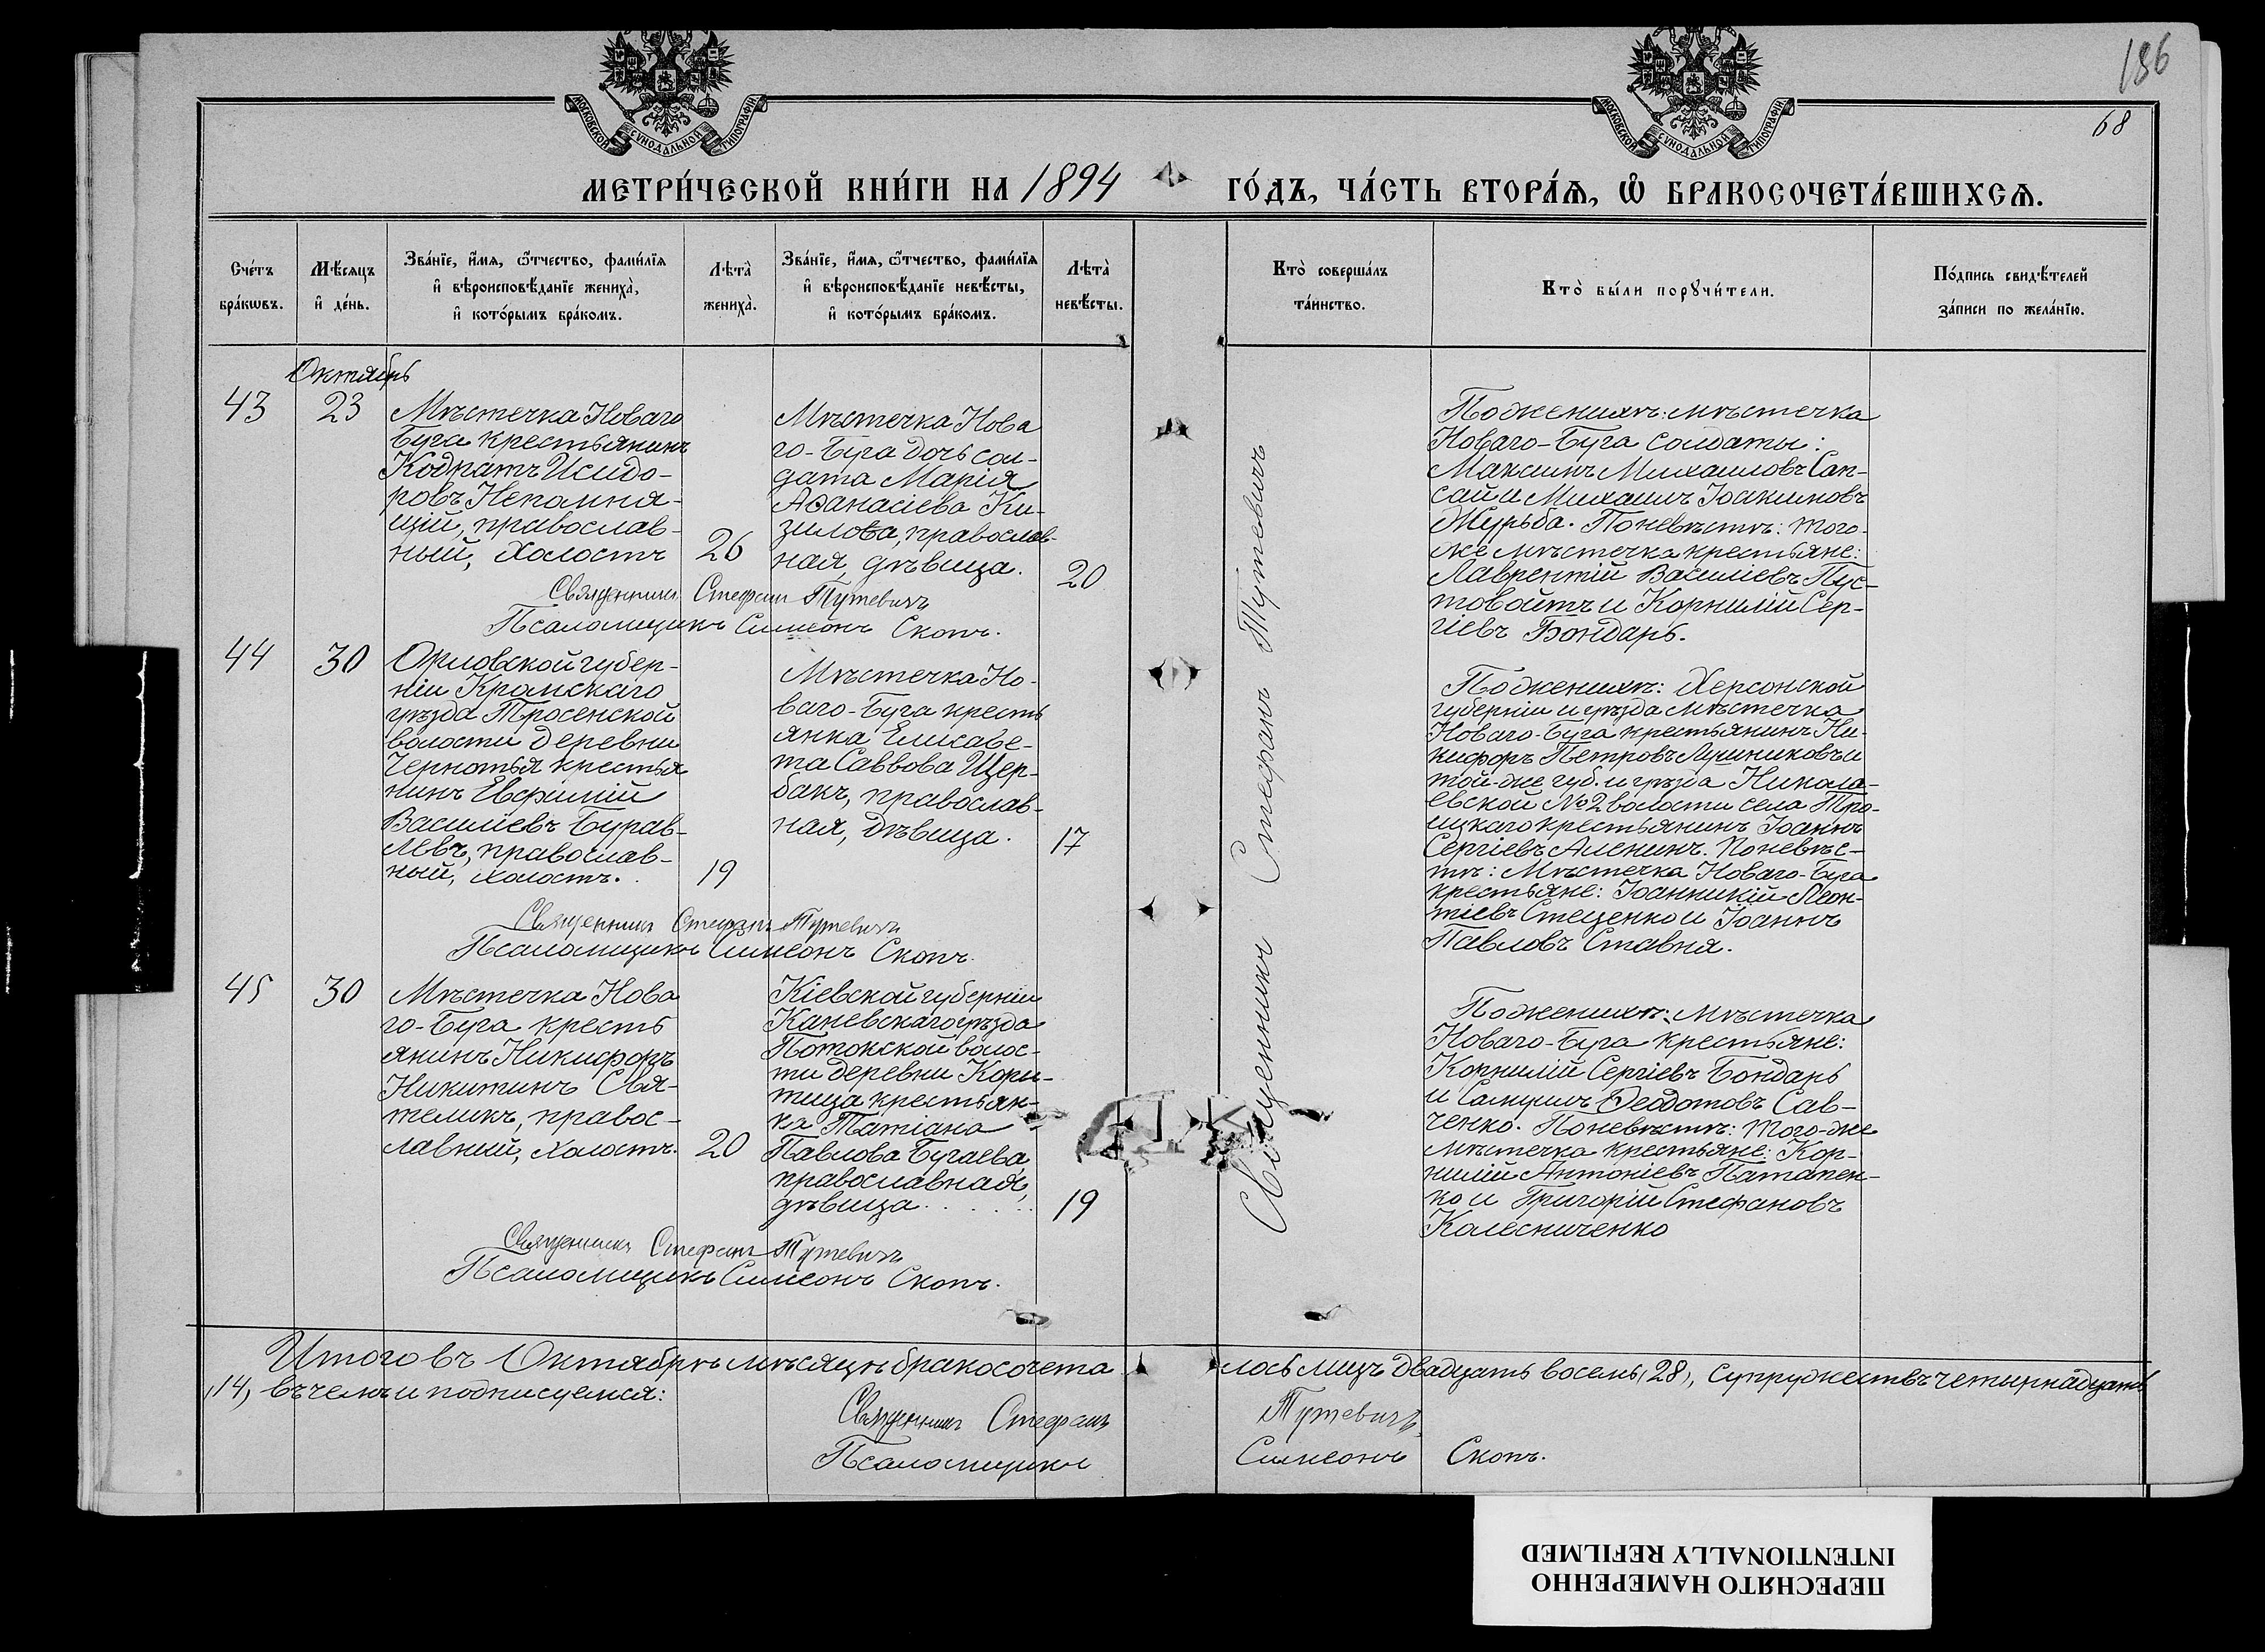 186
68
МОСКОВСКОЙ СѴНОДАЛЬНОЙ ТИПОГРАФІИ
МОСКОВСКОЙ СѴНОДАЛЬНОЙ ТИПОГРАФІИ
МЕТРИ́ЧЕСКОЙ КНИ́ГИ НА 1894 ГО́ДЪ, ЧА́СТЬ ВТОРА́Ѧ, Ѡ҆ БРАКОСОЧЕТА́ВШИХСѦ.
Сче́тъ
бра́кѡвъ.
Мѣ́сяцъ
и҆ де́нь.
Зва́нїе, и҆́мя, ѻ҆́тчество, фами́лїя
и҆ вѣроисповѣ́данїе жениха̀,
и҆ кото́рымъ бра́комъ.
Лѣта̀
жениха̀.
Зва́нїе, и҆́мя, ѻ҆́тчество, фами́лїя
и҆ вѣроисповѣ́данїе невѣ́сты,
и҆ кото́рымъ бра́комъ.
Лѣта̀
невѣ́сты.
Кто̀ соверша́лъ
та́инство.
Кто̀ бы́ли порꙋчи́тели.
По́дпись свидѣ́телей
за́писи по жела́нїю.
Октябрь
43
23
Мѣстечка Новаго
Буга крестьянинъ
Кодратъ Исидо-
ровъ Непомня-
щій, православ-
ный, холостъ
26
Мѣстечка Нова
го-Буга дочь сол-
дата Марія
Аѳанасіева Ки-
зилова, православ-
ная, дѣвица.
20
По женихѣ: мѣстечка
Новаго-Буга солдаты:
Максимъ Михаиловъ Сап-
сай и Михаилъ Іоакимовъ
Журьба. По невѣстѣ: того-
же мѣстечка крестьяне:
Лаврентій Василіевъ Пус-
товойтъ и Корнилій Сер-
гіевъ Бондарь.
Священникъ Стефанъ Тутевичъ
Псаломщикъ Симеонъ Скопъ.
44
30
Орловской губер-
ніи Кромскаго
уѣзда Тросенской
волости деревни
Чернотья крестья
нинъ Евфимій
Василіевъ Бурав-
левъ, православ-
ный, холостъ.
19
Мѣстечка Но-
ваго-Буга кресть
янка Елисаве-
та Саввова Щер-
бакъ, православ-
ная, дѣвица.
17
По женихѣ: Херсонской
губерніи и уѣзда мѣстечка
Новаго-Буга крестьянинъ Ни-
кифоръ Петровъ Лушниковъ и
той-же губ. и уѣзда Никола-
евской № 2 волости села Тро-
ицкаго крестьянинъ Іоаннъ
Сергіевъ Аленинъ. По невѣс-
тѣ: Мѣстечка Новаго-Буга
крестьяне: Іоанникій Леон-
тіевъ Стеценко и Іоаннъ
Павловъ Ставня.
Священникъ Стефанъ Тутевичъ
Псаломщикъ Симеонъ Скопъ.
45
30
Мѣстечка Нова
го-Буга кресть
янинъ Никифоръ
Никитинъ Свя-
теликъ, правос-
лавный, холостъ.
20
Кіевской губерніи
Каневскаго уѣзда
Потокской волос-
ти деревни Кори-
тища крестьян-
ка Татіана
Павлова Бугаева,
православная,
дѣвица.
19
По женихѣ: Мѣстечка
Новаго-Буга крестьяне:
Корнилій Сергіевъ Бондарь
и Самуилъ Ѳеодотовъ Сав-
ченко. По невѣстѣ: того-же
мѣстечка крестьяне: Кор-
нилій Антоніевъ Патапен-
ко и Григорій Стефановъ
Колесниченко
Священникъ Стефанъ Тутевичъ
Псаломщикъ Симеонъ Скопъ.
Священникъ Стефанъ Тутевичъ
Итого въ Октябрѣ мѣсяцѣ бракосочета лось лицъ двадцать восемь (28), супружествъ четырнадцать
(14), въ чемъ и подписуемся:
Священникъ Стефанъ Тутевичъ
Псаломщикъ Симеонъ Скопъ.
ПЕРЕСНЯТО НАМЕРЕННО
INTENTIONALLY REFILMED